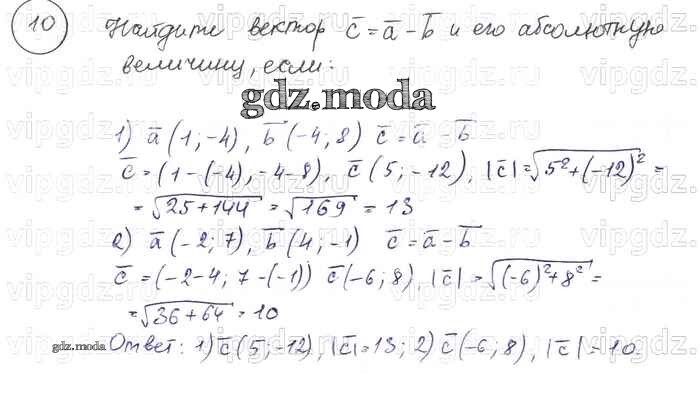 10 Найдите вектор c̅ = a̅ - b̅ и его абсолютную
величину, если:
gdz.moda
1) a̅ (1; -4), b̅ (-4; 8) c̅ = a̅ - b̅
c̅ = (1 - (-4), -4-8), c̅ (5; -12), |c̅| = √5²+(-12)² =
= √25+144 = √169 = 13
2) a̅ (-2; 7), b̅ (4; -1) c̅ = a̅ - b̅
c̅ = (-2-4; 7-(-1)) c̅ (-6; 8), |c̅| = √(-6)²+8² =
= √36+64 = 10
gdz.moda Ответ: 1) c̅ (5; -12), |c̅| = 13; 2) c̅ (-6; 8), |c̅| = 10.